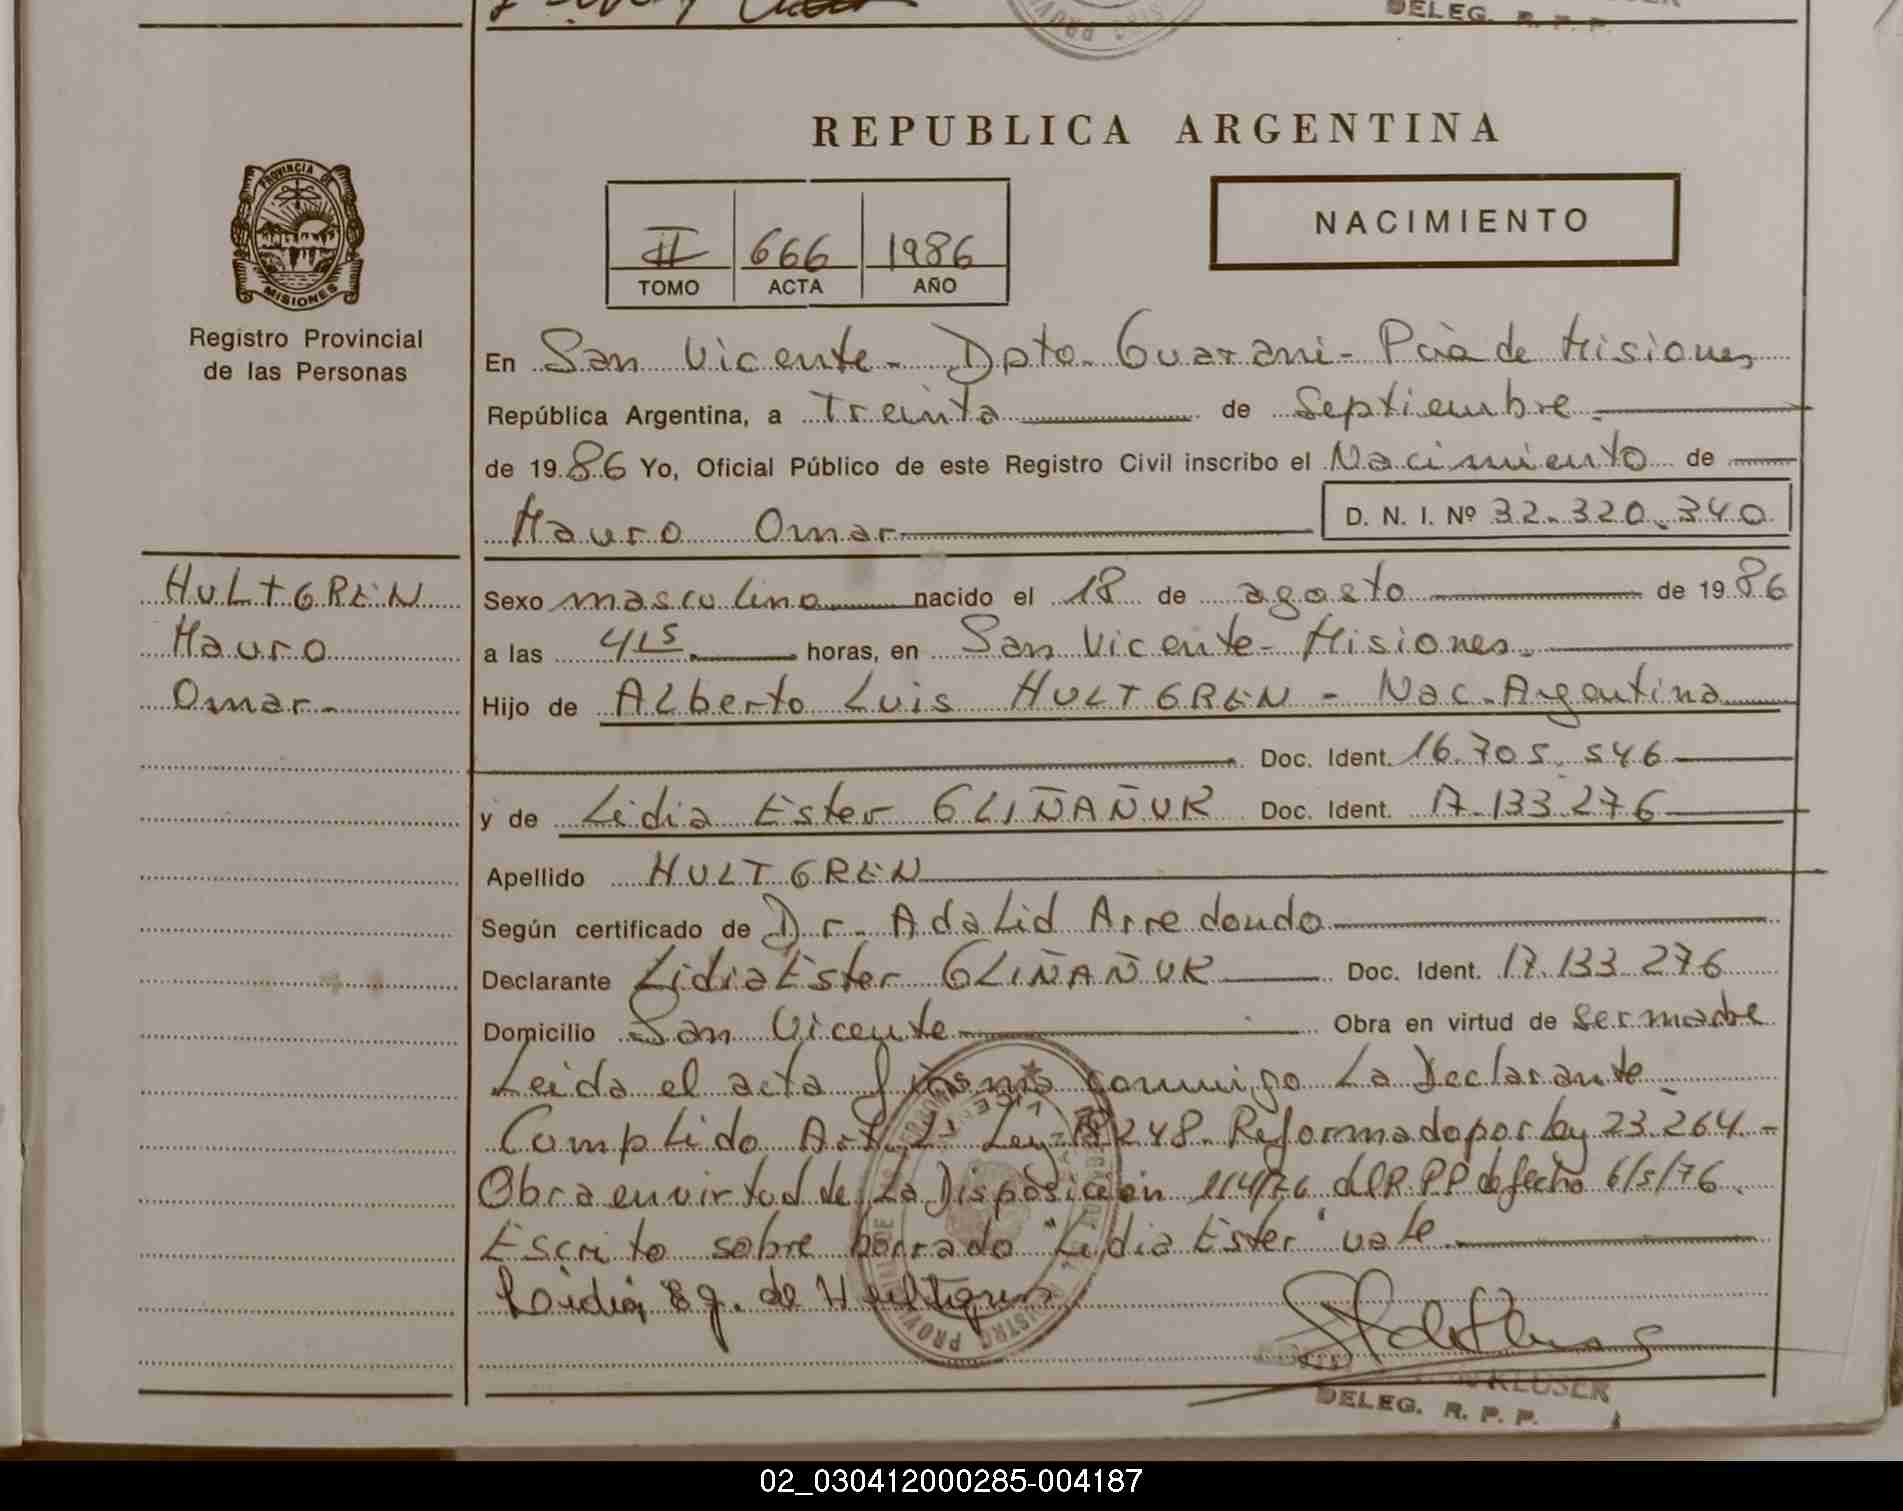 DELEG. R. P. P.
REPUBLICA ARGENTINA
PROVINCIA DE
MISIONES
Registro Provincial
de las Personas
NACIMIENTO
II 666 1986
TOMO ACTA AÑO
En San Vicente - Dpto. Guarani - Pcia de Misiones
República Argentina, a Treinta de Septiembre
de 1986 Yo, Oficial Público de este Registro Civil inscribo el Nacimiento de
Mauro Omar D. N. I. Nº 32.320.340
HULTGREN
Mauro
Omar.-
Sexo masculino nacido el 18 de agosto de 1986
a las 4 15 horas, en San Vicente - Misiones.
Hijo de Alberto Luis HULTGREN - Nac. Argentina
Doc. Ident. 16.705.546
y de Lidia Ester GLIÑAÑUK Doc. Ident. 17.133.276
Apellido HULTGREN
Según certificado de Dr. Adalid Arredondo
Declarante Lidia Ester GLIÑAÑUK Doc. Ident. 17.133.276
Domicilio San Vicente Obra en virtud de ser madre
Leida el acta firma conmigo La Declarante.
Cumplido Art. 2º Ley 18248. Reformado por ley 23.264.-
Obra en virtud de La Disposicion 114/76 del R.P.P de fecha 6/5/76.
Escrito sobre borrado "Lidia Ester" vale.
Lidia E g. de Hultgren
KLUSER
DELEG. R. P. P.
02_030412000285-004187